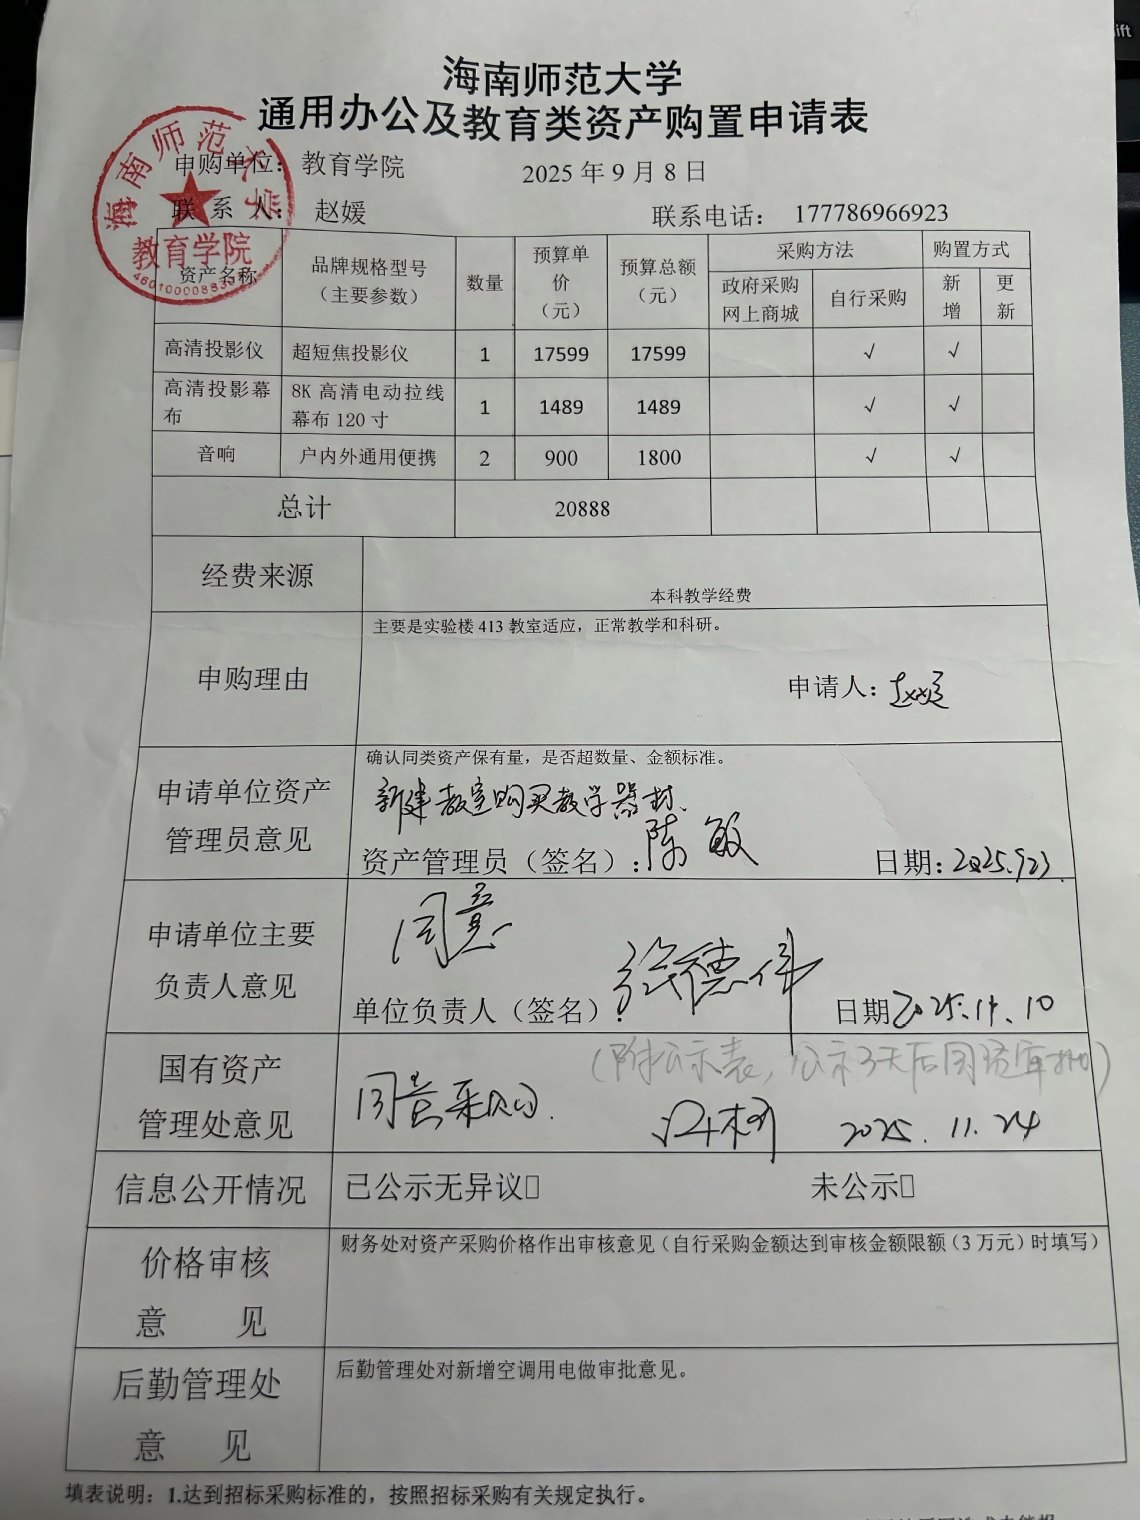 海南师范大学
通用办公及教育类资产购置申请表
申购单位：教育学院 2025 年 9 月 8 日
联 系 人： 赵媛 联系电话： 177786966923
海南师范大学
教育学院
资产名称 品牌规格型号（主要参数） 数量 预算单价（元） 预算总额（元） 采购方法 购置方式
政府采购网上商城 自行采购 新增 更新
高清投影仪 超短焦投影仪 1 17599 17599 √ √
高清投影幕布 8K 高清电动拉线幕布 120 寸 1 1489 1489 √ √
音响 户内外通用便携 2 900 1800 √ √
总计 20888
经费来源 本科教学经费
申购理由 主要是实验楼 413 教室适应，正常教学和科研。
申请人：赵媛
申请单位资产管理员意见 确认同类资产保有量，是否超数量、金额标准。
新建教室购买教学器材.
资产管理员（签名）：陈敏 日期：2025.9.23.
申请单位主要负责人意见 同意
单位负责人（签名）： 德伟 日期 2025.11.10
国有资产管理处意见 （附公示表，公示3天后国资审批）
同意采购. 2025.11.24
信息公开情况 已公示无异议□ 未公示□
价格审核意 见 财务处对资产采购价格作出审核意见（自行采购金额达到审核金额限额（3 万元）时填写）
后勤管理处意 见 后勤管理处对新增空调用电做审批意见。
填表说明：1.达到招标采购标准的，按照招标采购有关规定执行。